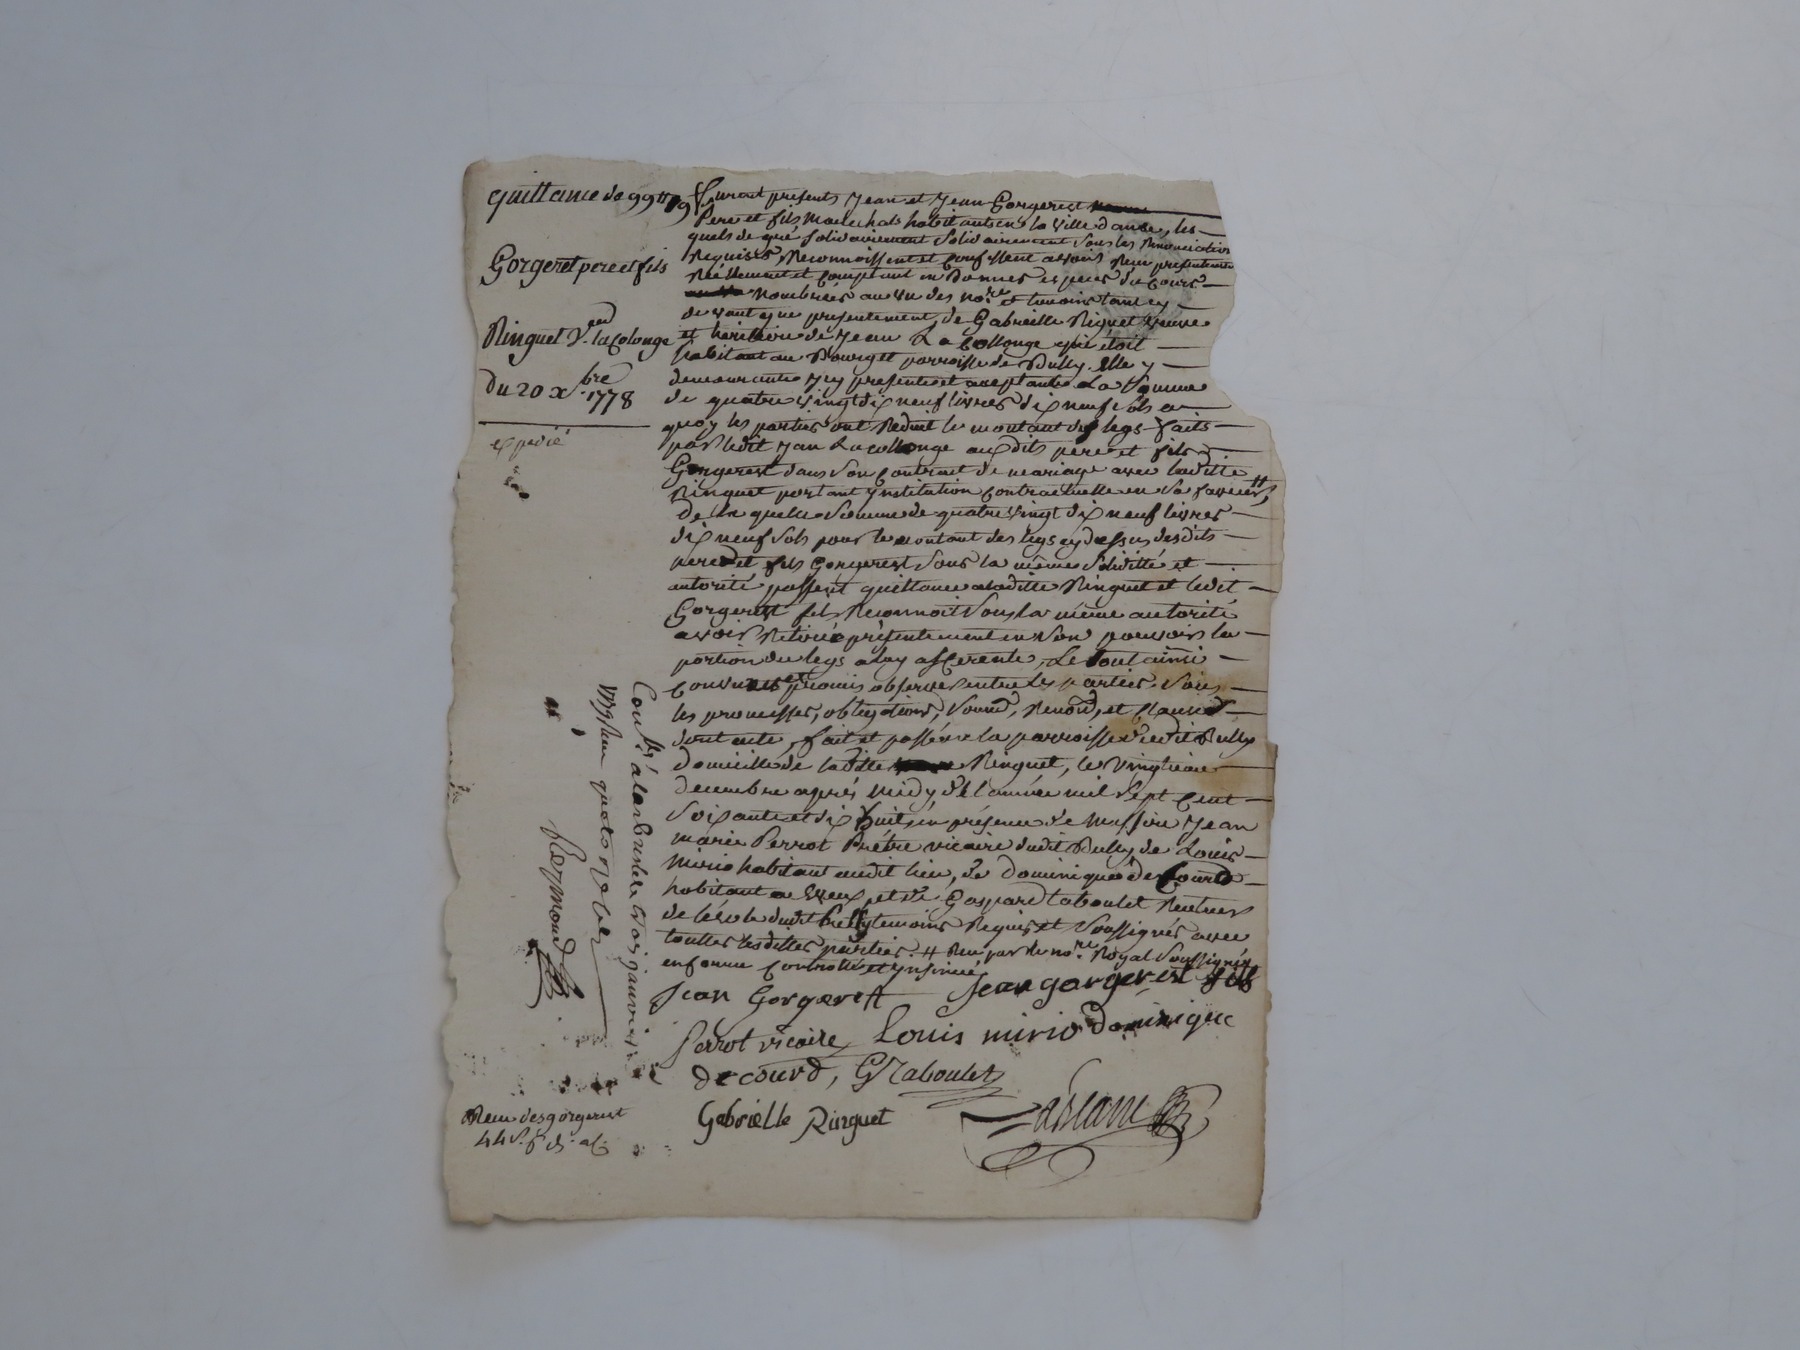 quittance de 99# 19s
Gorgeret pere et fils
Ringuet Ve. la Colonge
du 20 xbre 1778
expedié
Furent presents Jean et Jean Gorgerest
Pere et fils Marechals habitants en la ville d'anse, les
quels de gré solidairement solidairement sous les Renonciations
Requises, Reconnoissent et Confessent avoir Reçu presentement
Réellement et Comptant en Bonnes especes du Cours
Nombrées au vu des nore et temoins tant cy
devant que presentement, de Gabrielle Riguet veuve
et héritière de Jean La Collonge qui étoit
habitant au Bourg et parroisse de Bully Elle y
demeurante Icy presente et aceptante La Somme
de quatre vingt dix neuf livres dix neuf sols a
quoy les parties ont Reduit le montant des legs faits
par ledit Jean Lacollonge auxdits pere et fils
Gorgerest dans son Contrat de mariage avec laditte
Ringuet portant Institution Contractuelle en sa faveur #,
De la quelle Somme de quatre vingt dix neuf livres
dix neuf sols pour le montant des legs cy dessus lesdits
pere et fils Gorgerest sous la même solidité et
autorité passent quittance a laditte Ringuet et ledit
Gorgerest fils Reconnoit sous la même autorité
avoir Retiré présentement en son pouvoir la
portion du legs a luy afferente, Le tout ainsi
Convenu et promis observer entre les parties sous
les promesses, obligations, soumd, Renond, et Clauses
dont acte, fait et passé en la parroisse dudit Bully
domicille de laditte Ringuet, le vingtieme
decembre après midy de l'année mil sept Cent
Soixante et dix huit, en présence de Messire Jean
marie Perrot Prêtre vicaire dudit Bully de Louis
Mirio habitant audit lieu, de Dominique deCourd
habitant a et de Gaspard taboulet Recteur
de l'école dudit Bully temoins Requis et Soussignés avec
touttes lesdittes parties. # Reçu par le nore Royal Soussigné
en forme Controllé et Insinué
Jean Gorgerest Jean gorgerest fils
Perrot vicaire Louis mirio dominique
decourd, G Taboulet
Gabrielle Ringuet
Conllé à larbresle le trois janvier
Raymond
Reçu des gorgerest